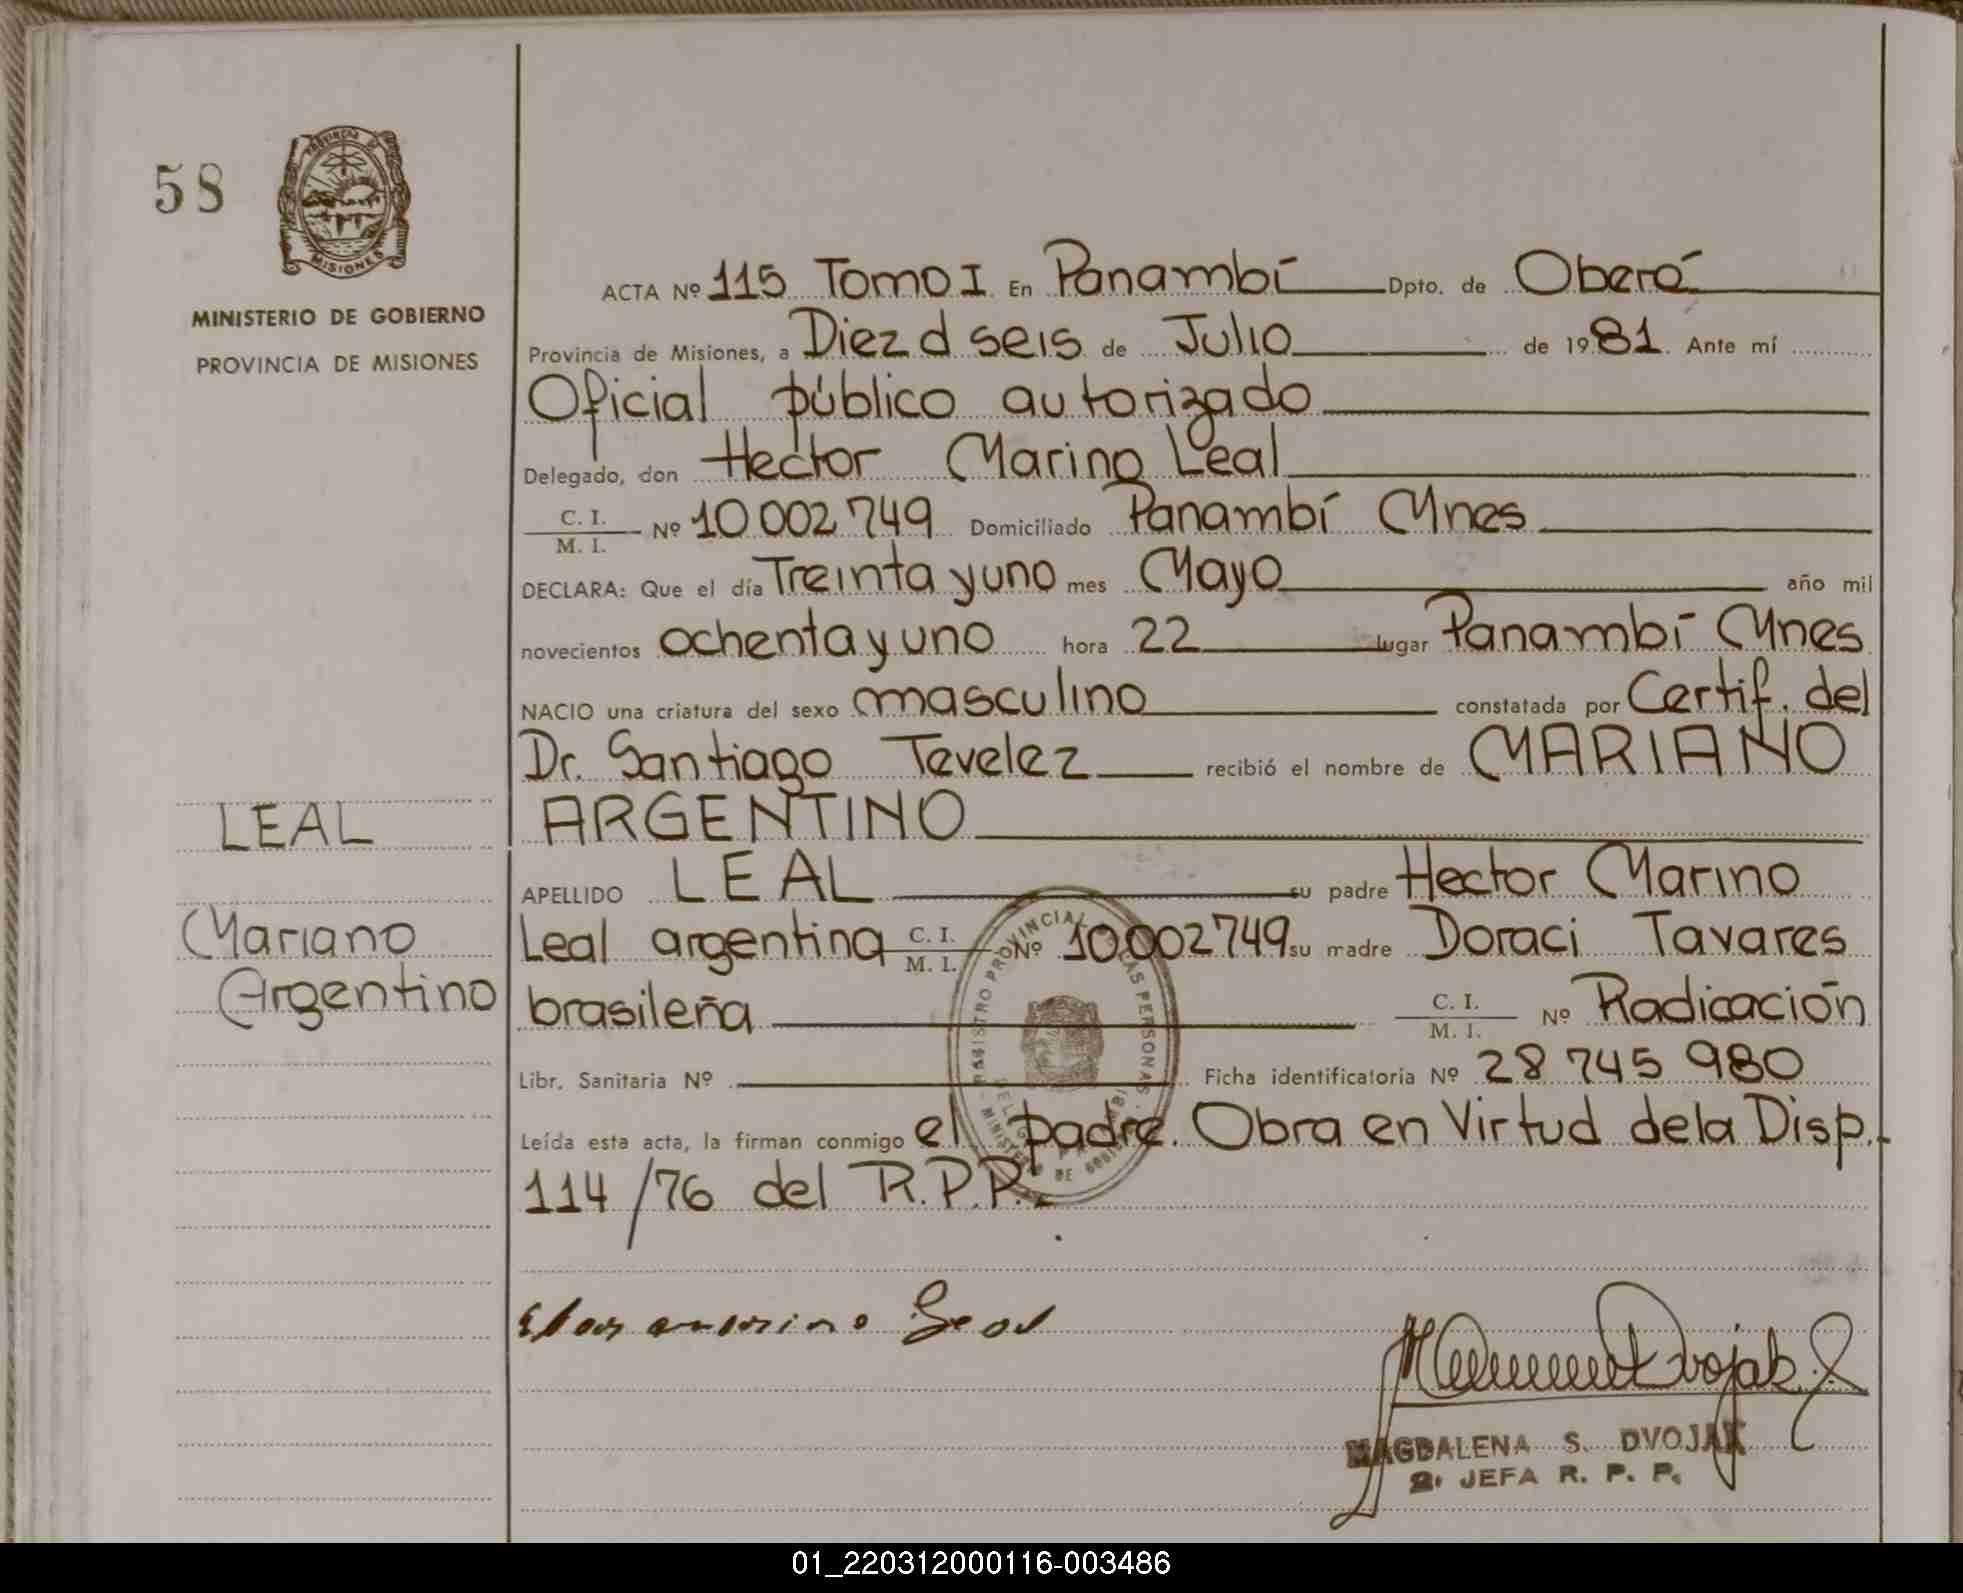 58
PROVINCIA DE
MISIONES
MINISTERIO DE GOBIERNO
PROVINCIA DE MISIONES
ACTA Nº 115 Tomo I En Panambí Dpto. de Oberá
Provincia de Misiones, a Diez d seis de Julio de 1981 Ante mí
Oficial público autorizado
Delegado, don Hector Marino Leal
C. I.
M. I. Nº 10 002 749 Domiciliado Panambí Mnes
DECLARA: Que el día Treinta y uno mes Mayo año mil
novecientos ochenta y uno hora 22 lugar Panambí Mnes
NACIO una criatura del sexo masculino constatada por Certif. del
Dr. Santiago Tevelez recibió el nombre de MARIANO
ARGENTINO
LEAL
APELLIDO LEAL su padre Hector Marino
Mariano
Argentino
Leal argentina C. I.
M. I. Nº 10002749 su madre Doraci Tavares
brasileña C. I.
M. I. Nº Radicación
Libr. Sanitaria Nº Ficha identificatoria Nº 28 745 980
Leída esta acta, la firman conmigo el padre. Obra en Virtud de la Disp.
114/76 del R.P.P.
REGISTRO PROVINCIAL DE LAS PERSONAS
MINISTERIO DE GOBIERNO
Leal
Dvojak
MAGDALENA S. DVOJAK
2. JEFA R. P. P.
01_220312000116-003486